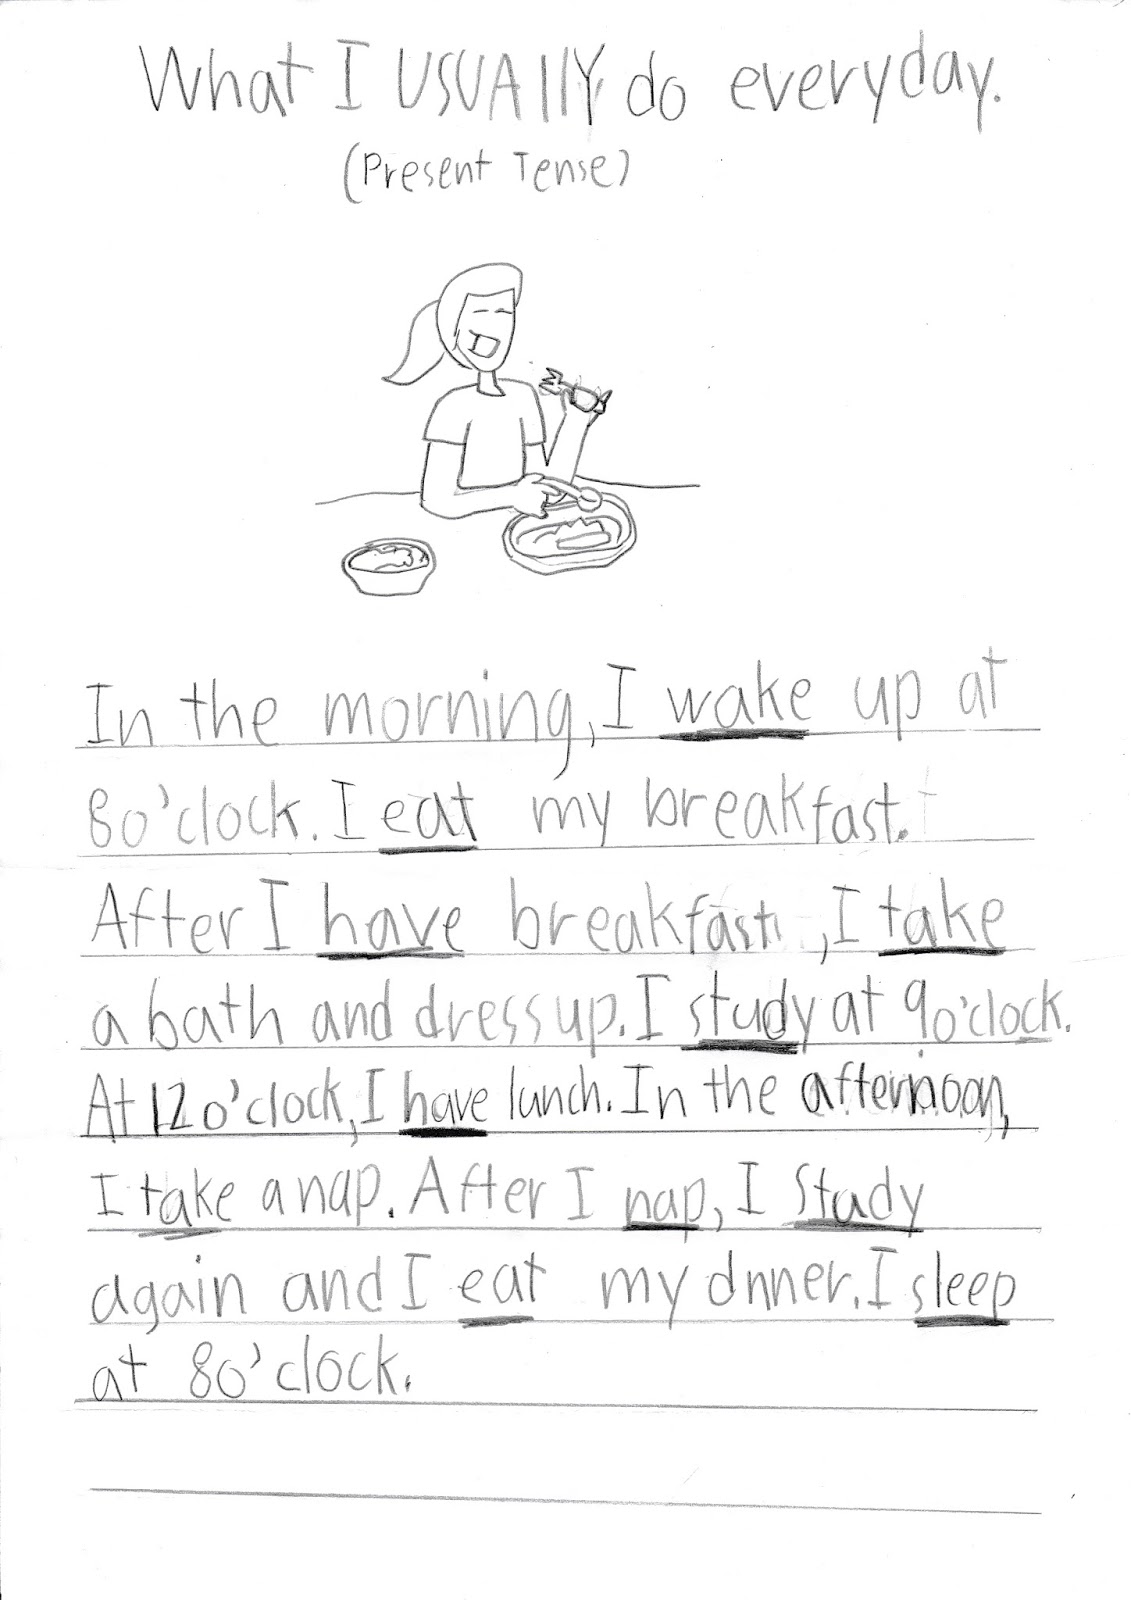 What I USUAlly do everyday.
(Present Tense)
In the morning, I wake up at
8 o'clock. I eat my breakfast.
After I have breakfast, I take
a bath and dress up. I study at 9 o'clock.
At 12 o'clock, I have lunch. In the afternoon,
I take a nap. After I nap, I study
again and I eat my dnner. I sleep
at 8 o'clock.